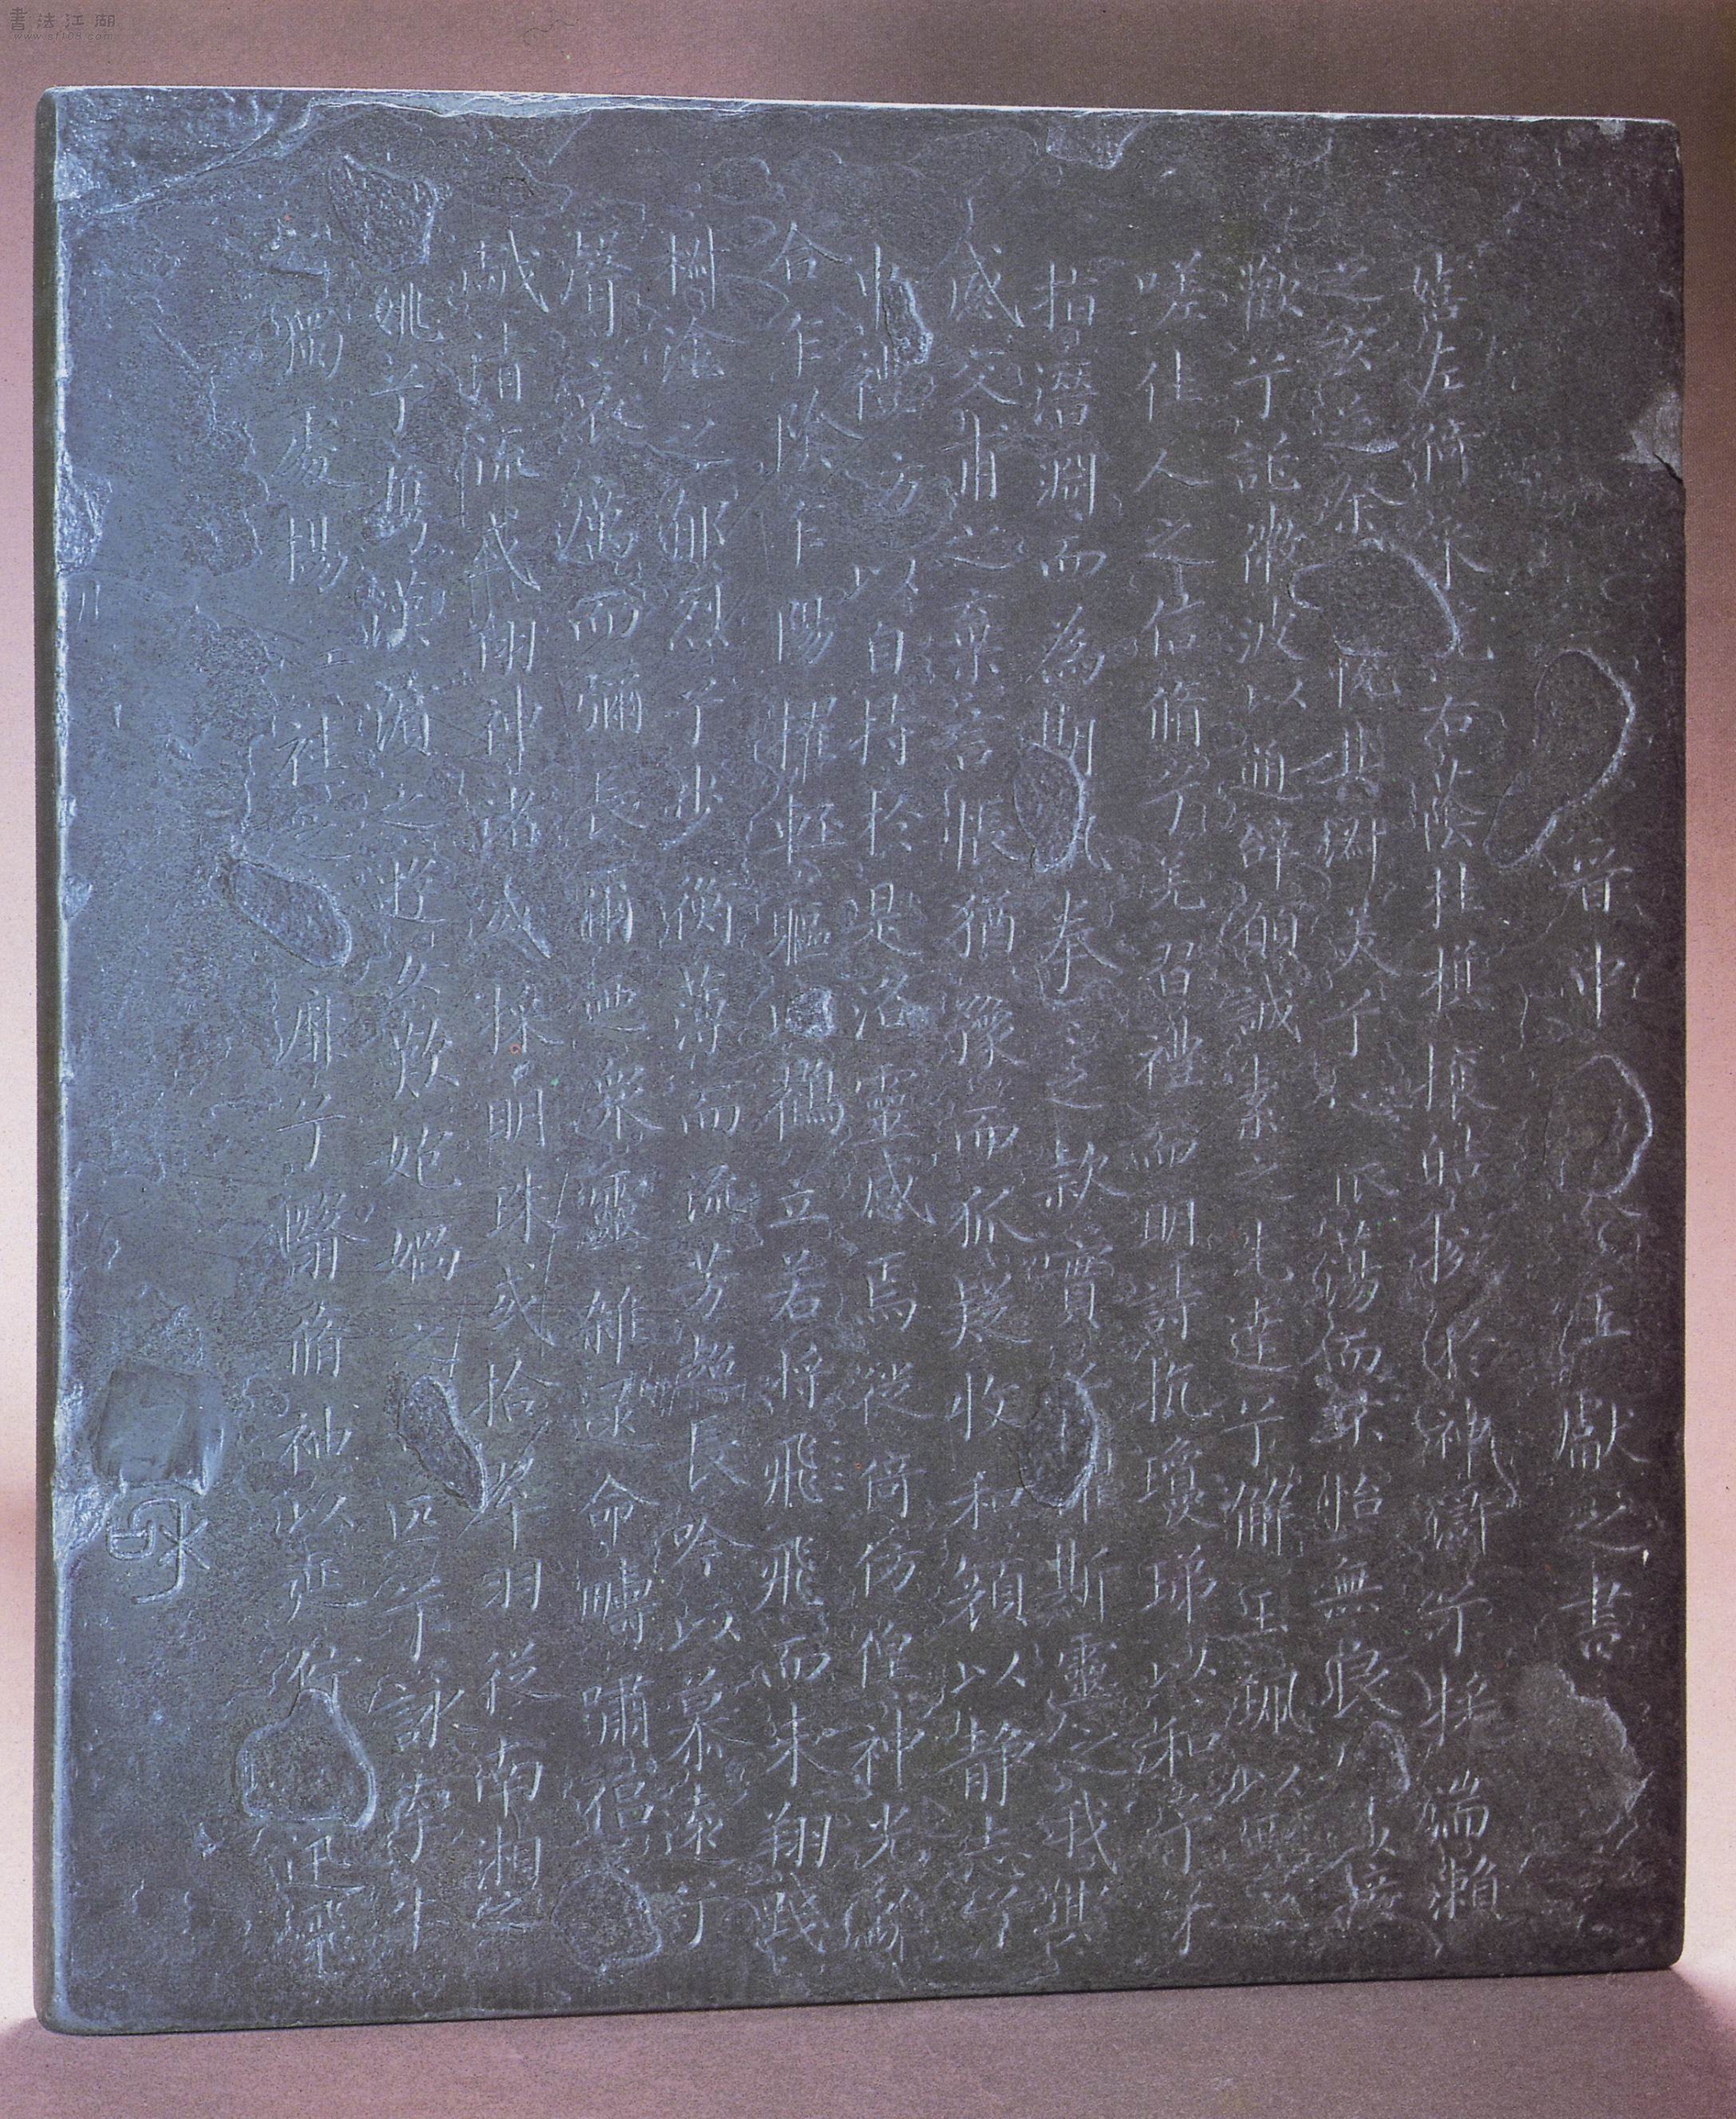 書法江湖
www.sf108.com
晉中 王獻之書
嬉左倚采旄右蔭桂旗攘皓捥於神滸兮採湍瀨
之玄芝余 悅其淑美兮心振蕩而不怡無良 以接
懽兮託微波以通辭願誠素之先達兮解玉珮以要之
嗟佳人之信脩兮羌習禮而明詩抗瓊珶以和予兮
指潛淵而為期執拳〻之款實兮 斯靈之我欺
感交甫之棄言悵猶豫而狐疑收和顏以静志兮
申禮防以自持於是洛靈感焉徙倚傍偟神光離
合乍陰乍陽擢輕軀以鶴立若將飛飛而未翔踐
椒塗之郁烈兮步衡薄而流芳超長吟以慕遠兮
聲哀厲而彌長爾迺衆靈雜遝命疇嘯侶
戲清流或翔神渚或採明珠或拾翠羽從南湘之
姚兮攜漢濱之遊女歎匏媧之 匹兮詠牽牛
之獨處揚 袿 靡兮翳脩袖以延佇 迅飛